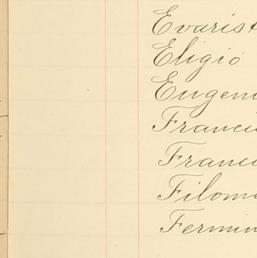 Evarist
Eligio
Eugeni
Francis
Franci
Filome
Fermin